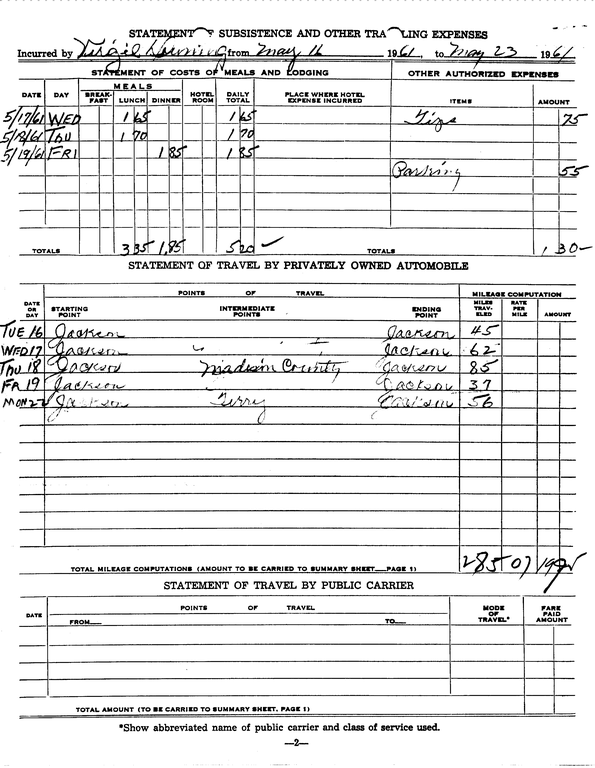 STATEMENT OF SUBSISTENCE AND OTHER TRAVELING EXPENSES
Incurred by Virgil Downing from May 16 1961, to May 23 1961
STATEMENT OF COSTS OF MEALS AND LODGING OTHER AUTHORIZED EXPENSES
DATE DAY MEALS BREAK-FAST LUNCH DINNER HOTEL ROOM DAILY TOTAL PLACE WHERE HOTEL EXPENSE INCURRED ITEMS AMOUNT
5/17/61 WED 1 65 1 65 Tips 75
5/18/61 THU 1 70 1 70
5/19/61 FRI 1 85 1 85
Parking 55
TOTALS 3 35 1,85 5 20 TOTALS 1 30
STATEMENT OF TRAVEL BY PRIVATELY OWNED AUTOMOBILE
DATE OR DAY POINTS OF TRAVEL MILEAGE COMPUTATION
STARTING POINT INTERMEDIATE POINTS ENDING POINT MILES TRAV-ELED RATE PER MILE AMOUNT
TUE 16 Jackson Jackson 45
WED 17 Jackson Jackson 62
THU 18 Jackson Madison County Jackson 85
FR 19 Jackson Jackson 37
MON 22 Jackson Terry Jackson 56
TOTAL MILEAGE COMPUTATIONS (AMOUNT TO BE CARRIED TO SUMMARY SHEET—PAGE 1) 285 07
STATEMENT OF TRAVEL BY PUBLIC CARRIER
DATE POINTS OF TRAVEL MODE OF TRAVEL* FARE PAID AMOUNT
FROM— TO—
TOTAL AMOUNT (TO BE CARRIED TO SUMMARY SHEET, PAGE 1)
*Show abbreviated name of public carrier and class of service used.
—2—